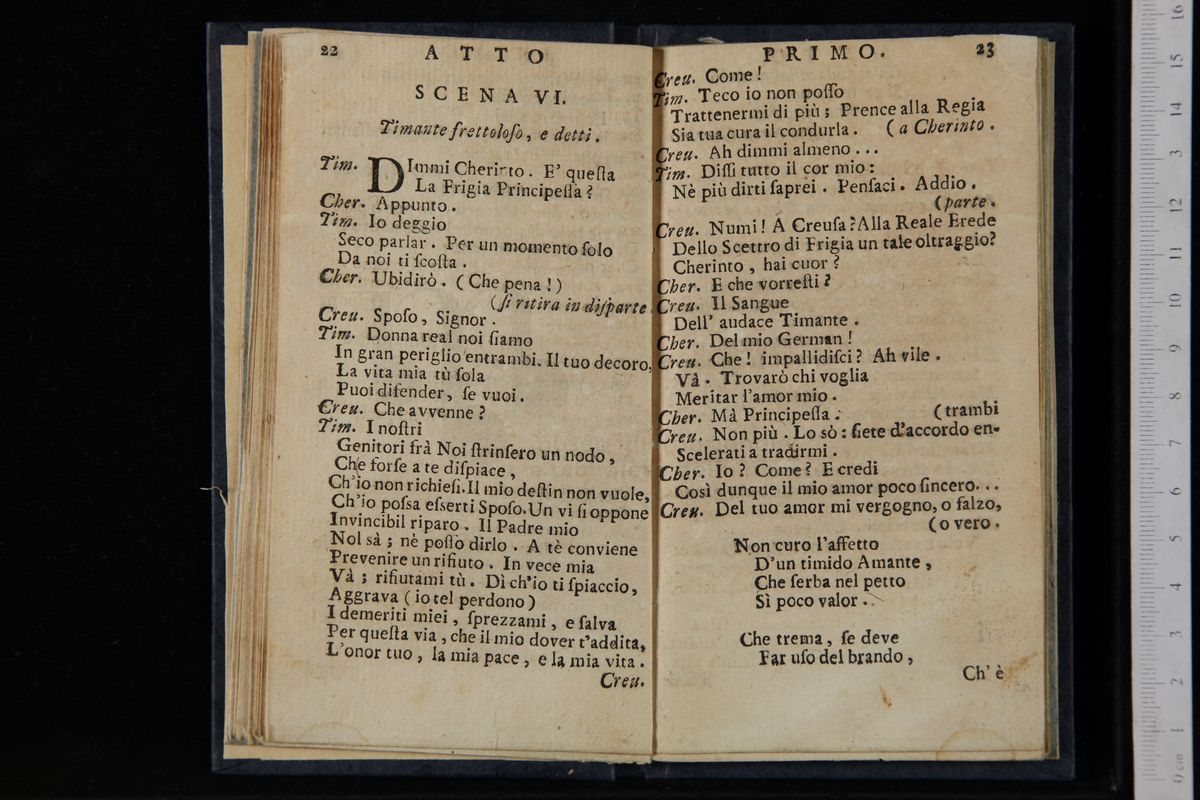 22 ATTO
SCENA VI.
Timante frettoloſo, e detti.
Tim. DImmi Cherinto. E' queſta
La Frigia Principeſſa?
Cher. Appunto.
Tim. Io deggio
Seco parlar. Per un momento ſolo
Da noi ti ſcoſta.
Cher. Ubidirò. (Che pena!)
(ſi ritira in diſparte.
Creu. Spoſo, Signor.
Tim. Donna real noi ſiamo
In gran periglio entrambi. Il tuo decoro,
La vita mia tù ſola
Puoi difender, ſe vuoi.
Creu. Che avvenne?
Tim. I noſtri
Genitori frà Noi ſtrinſero un nodo,
Che forſe a te diſpiace,
Ch'io non richieſi. Il mio deſtin non vuole,
Ch'io poſsa eſserti Spoſo. Un vi ſi oppone
Invincibil riparo. Il Padre mio
Nol sà; nè poſſo dirlo. A tè conviene
Prevenire un rifiuto. In vece mia
Và; rifiutami tù. Dì ch'io ti ſpiaccio,
Aggrava (io tel perdono)
I demeriti miei, ſprezzami, e ſalva
Per queſta via, che il mio dover t'addita,
L'onor tuo, la mia pace, e la mia vita.
Creu.
PRIMO. 23
Creu. Come!
Tim. Teco io non poſſo
Trattenermi di più; Prence alla Regia
Sia tua cura il condurla. (a Cherinto.
Creu. Ah dimmi almeno...
Tim. Diſſi tutto il cor mio:
Nè più dirti ſaprei. Penſaci. Addio.
(parte.
Creu. Numi! A Creuſa? Alla Reale Erede
Dello Scettro di Frigia un tale oltraggio?
Cherinto, hai cuor?
Cher. E che vorreſti?
Creu. Il Sangue
Dell' audace Timante.
Cher. Del mio German!
Creu. Che! impallidiſci? Ah vile.
Và. Trovarò chi voglia
Meritar l'amor mio.
Cher. Mà Principeſſa. (trambi
Creu. Non più. Lo sò: ſiete d'accordo en-
Scelerati a tradirmi.
Cher. Io? Come? E credi
Così dunque il mio amor poco ſincero...
Creu. Del tuo amor mi vergogno, o falzo,
(o vero.
Non curo l'affetto
D'un timido Amante,
Che ſerba nel petto
Sì poco valor.
Che trema, ſe deve
Far uſo del brando,
Ch' è